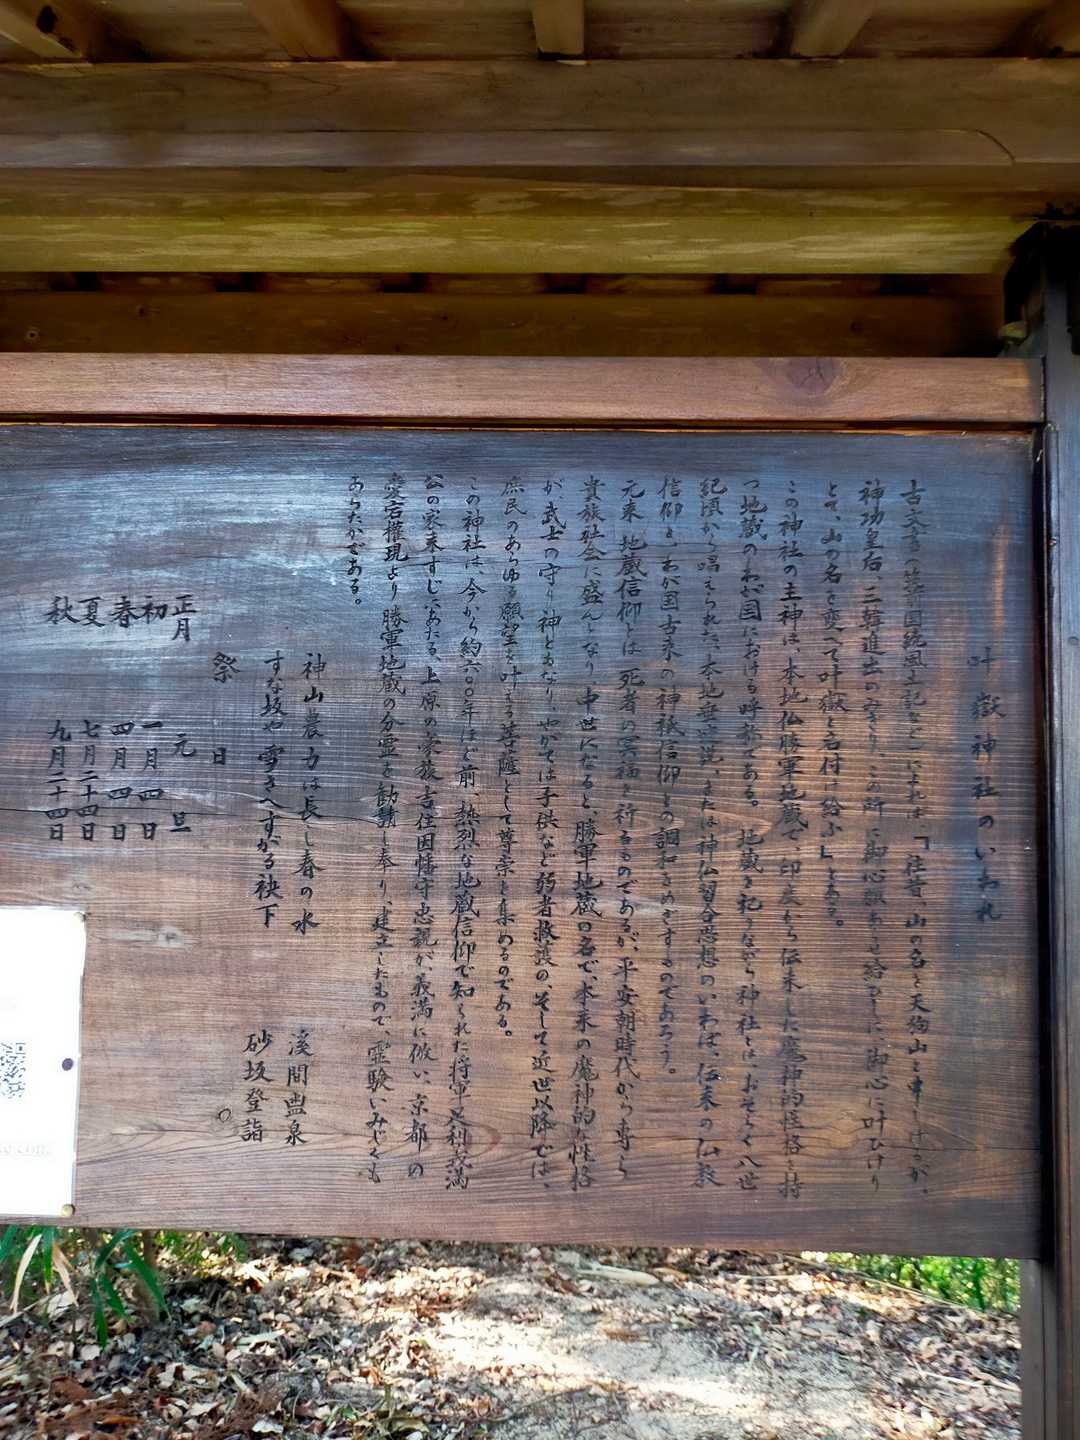 叶嶽神社のいわれ
古文書の筑前国続風土記などによれば、「往昔、山の名を天狗山と申しけるが、
神功皇后、三韓進出のみぎり、この所に御心願あらせ給ひしに、御心に叶ひけり
とて、山の名を変へて叶嶽と名付け給ふ」とある。
この神社の主神は、本地仏勝軍地蔵で、印度から伝来した魔神的性格を持
つ地蔵のわが国における呼称である。地蔵を祀りながら神社とは、おそらく八世
紀頃から唱えられた、本地垂迹説、または神仏習合思想のいわば、伝来の仏教
信仰と、わが国古来の神祇信仰との調和をめざすものであろう。
元来、地蔵信仰とは死者の冥福を祈るものであるが、平安朝時代から専ら
貴族社会に盛んとなり、中世になると、勝軍地蔵の名で、本来の魔神的な性格
が、武士の守り神ともなり、やがては子供など弱者救護の、そして近世以降では、
庶民のあらゆる願望を叶える菩薩として尊崇を集めるのである。
この神社は、今から約六〇〇年ほど前、熱烈な地蔵信仰で知られた将軍足利義満
公の家来すじにあたる、上原の豪族吉住因幡守忠親が、義満に倣い、京都の
愛宕権現より勝軍地蔵の分霊を勧請し奉り、建立したもので、霊験いみじくも
あらたかである。
神山農力は長し春の水 溪間盅泉
すな坂や雪さへすがる袂下 砂坂登詣
祭 日
正月 元旦
初 一月四日
春 四月四日
夏 七月二十四日
秋 九月二十四日